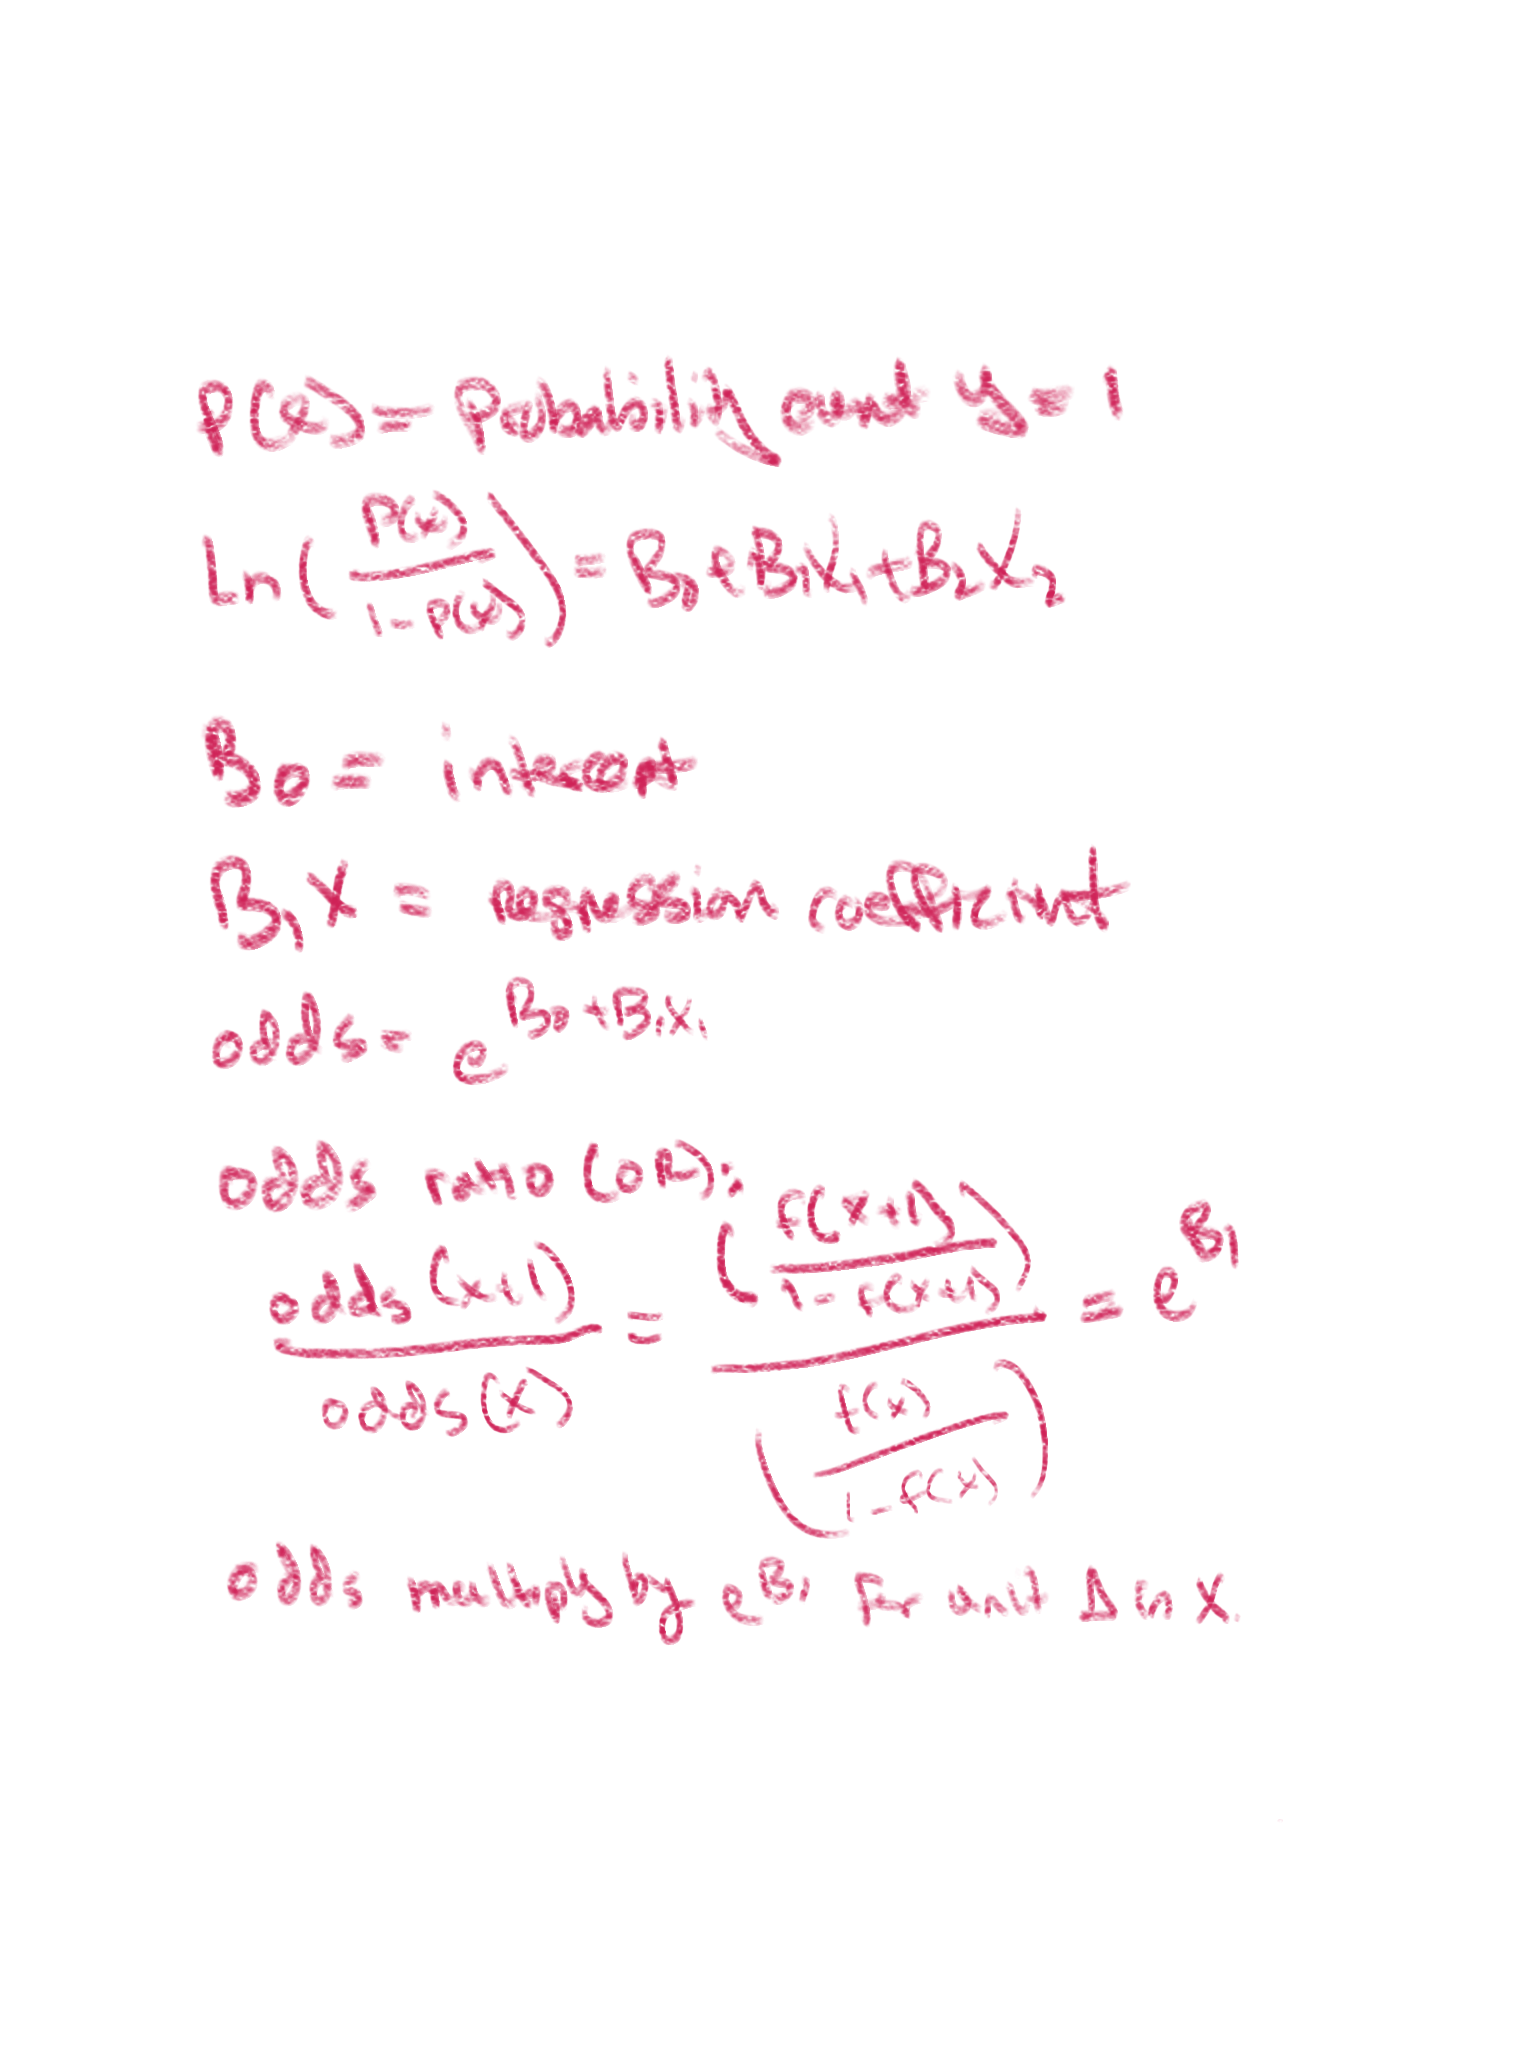 P(x) = Probability event y = 1
Ln(P(x) / 1 - P(x)) = B0 + B1X1 + B2X2
B0 = intercept
B1X = regression coefficient
odds = e^B0+B1X1
odds ratio (OR):
odds(x+1) / odds(x) = (f(x+1) / 1 - f(x+1)) / (f(x) / 1 - f(x)) = e^B1
odds multiply by e^B1 for unit Δ in X.